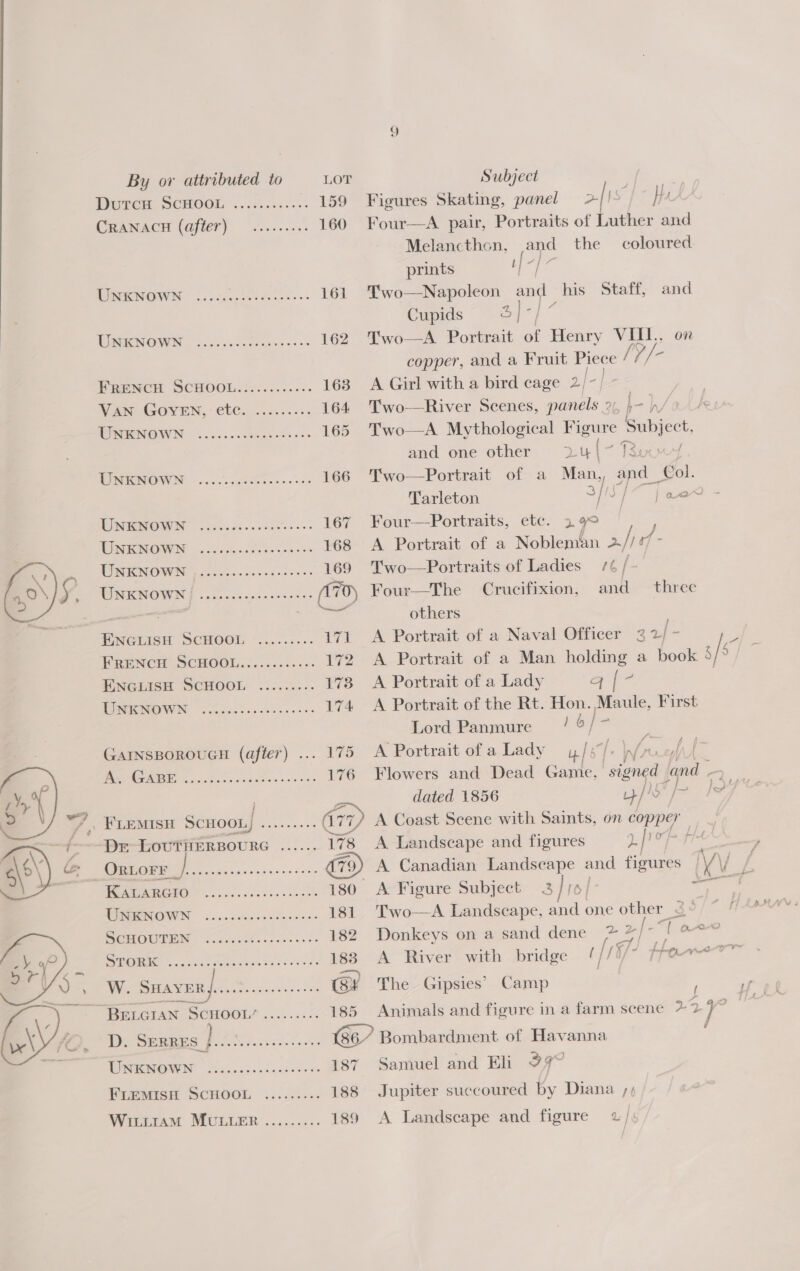 9
By or attributed to LOT Subject
DUTCH SCHOOL ............ 159 Figures Skating, panel
CRANACH (after) ......... 160 Four—A pair, Portraits of Luther and
Melancthon, and the coloured
prints
UNKNOWN .................. 161 Two—Napoleon and his Staff, and
Cupids 3/-/-
UNKNOWN .................. 162 Two—A Portrait of Henry VIII., on
copper, and a Fruit Piece 17/-
FRENCH SCHOOL............ 163 A Girl with a bird cage 2/-/-
VAN GOYEN, etc. ......... 164 Two—River Scenes, panels
UNKNOWN .................. 165 Two—A Mythological Figure Subject,
and one other 24/-
UNKNOWN .................. 166 Two—Portrait of a Man, and Col.
Tarleton 3/15/-
UNKNOWN .................. 167 Four—Portraits, etc.
UNKNOWN .................. 168 A Portrait of a Nobleman
UNKNOWN .................. 169 Two—Portraits of Ladies 16/-
UNKNOWN .................. 170 Four—The Crucifixion, and three
others
ENGLISH SCHOOL ......... 171 A Portrait of a Naval Officer 32/-
FRENCH SCHOOL............ 172 A Portrait of a Man holding a book
ENGLISH SCHOOL ......... 173 A Portrait of a Lady
UNKNOWN .................. 174 A Portrait of the Rt. Hon. Maule, First
Lord Panmure 16/-
GAINSBOROUGH (after) ... 175 A Portrait of a Lady
A. GABE .................. 176 Flowers and Dead Game, signed and
dated 1856
FLEMISH SCHOOL ......... 177 A Coast Scene with Saints, on copper
DE LOUTHERBOURG ...... 178 A Landscape and figures
ORLOFF .................. 179 A Canadian Landscape and figures
KALARGIO .................. 180 A Figure Subject 3/10/-
UNKNOWN .................. 181 Two—A Landscape, and one other
SCHOUTEN .................. 182 Donkeys on a sand dene 22/-
STORK .................. 183 A River with bridge
W. SHAYER.................. 184 The Gipsies' Camp
BELGIAN SCHOOL ......... 185 Animals and figure in a farm scene
D. SERRES .................. 186 Bombardment of Havanna
UNKNOWN .................. 187 Samuel and Eli
FLEMISH SCHOOL ......... 188 Jupiter succoured by Diana
WILLIAM MULLER ......... 189 A Landscape and figure